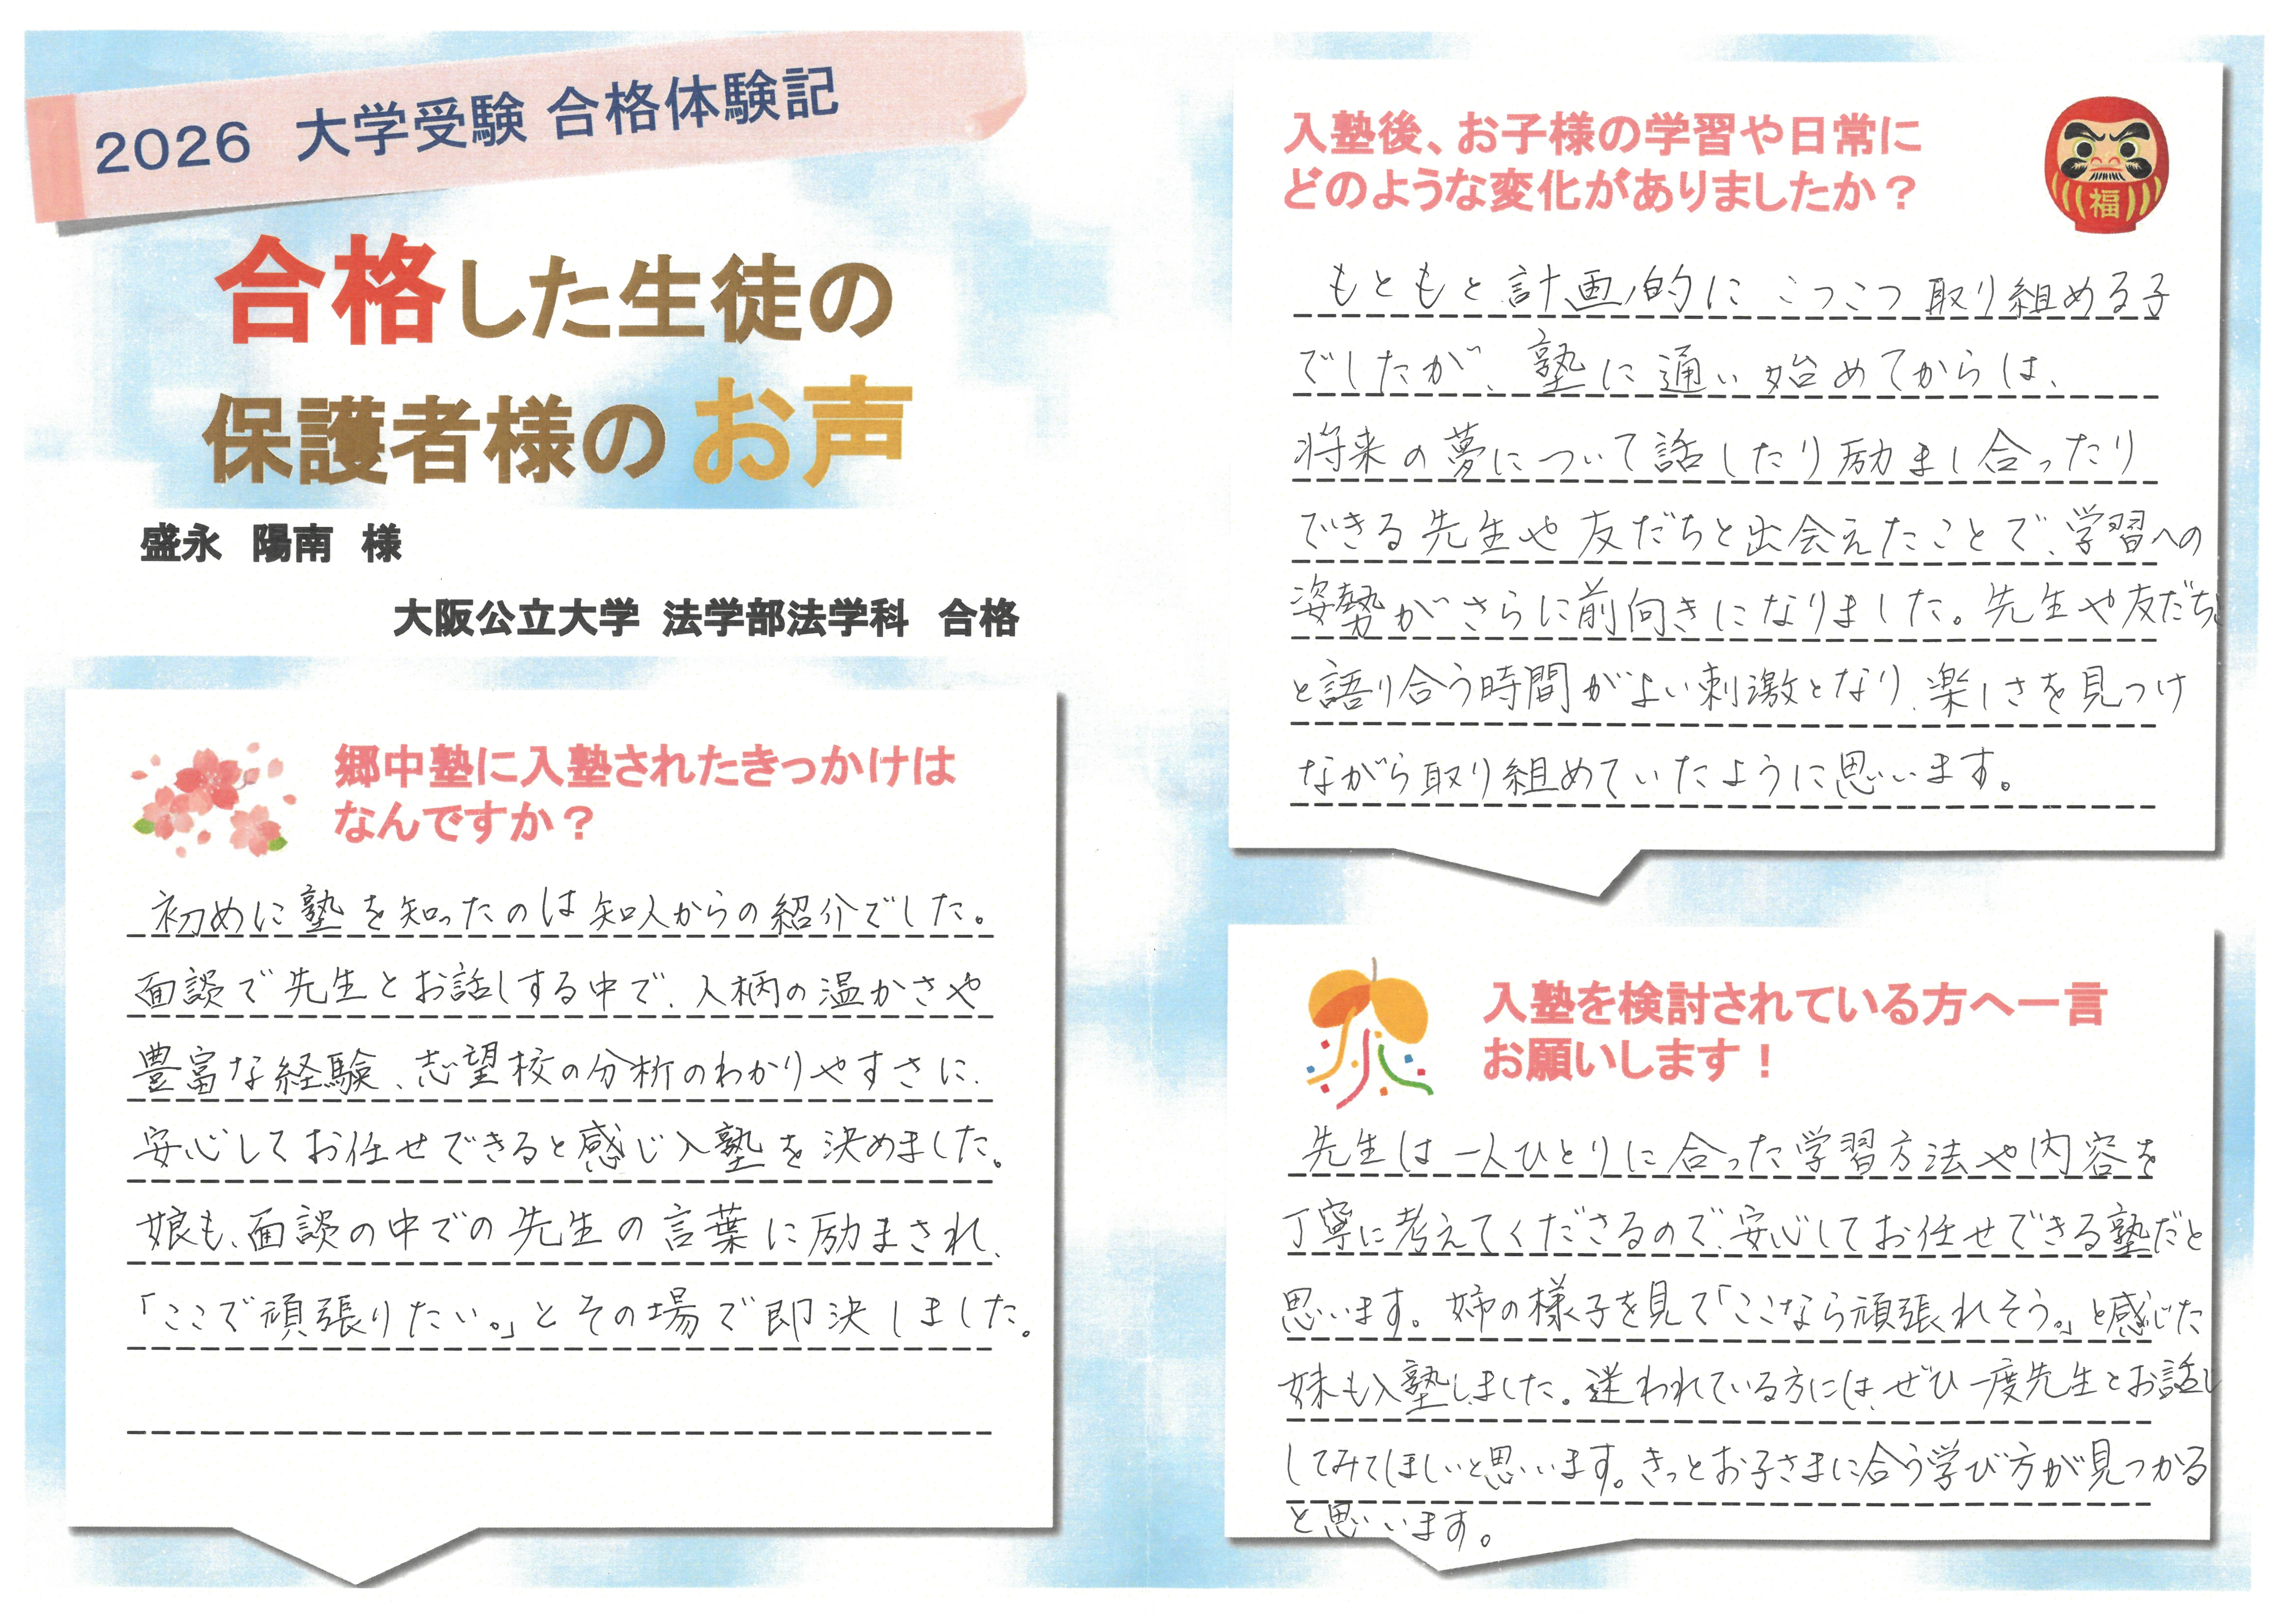 2026 大学受験 合格体験記
合格した生徒の
保護者様のお声
盛永 陽南 様
大阪公立大学 法学部法学科 合格
郷中塾に入塾されたきっかけは
なんですか？
初めに塾を知ったのは知人からの紹介でした。
面談で先生とお話しする中で、人柄の温かさや
豊富な経験、志望校の分析のわかりやすさに、
安心してお任せできると感じ入塾を決めました。
娘も、面談の中での先生の言葉に励まされ、
「ここで頑張りたい。」とその場で即決しました。
入塾後、お子様の学習や日常に
どのような変化がありましたか？
福
もともと計画的にこつこつ取り組める子
でしたが、塾に通い始めてからは、
将来の夢について話したり励まし合ったり
できる先生や友だちと出会えたことで、学習への
姿勢がさらに前向きになりました。先生や友だち
と語り合う時間がよい刺激となり、楽しさを見つけ
ながら取り組めていたように思います。
入塾を検討されている方へ一言
お願いします！
先生は一人ひとりに合った学習方法や内容を
丁寧に考えてくださるので、安心してお任せできる塾だと
思います。姉の様子を見て「ここなら頑張れそう。」と感じた
妹も入塾しました。迷われている方には、ぜひ一度先生とお話し
してみてほしいと思います。きっとお子さまに合う学び方が見つかる
と思います。